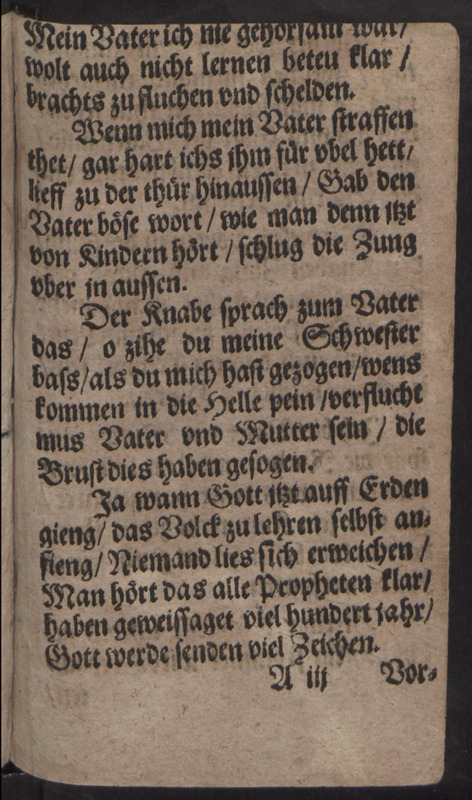 Mein Vater ich nie gehorsam war/
wolt auch nicht lernen beten klar /
brachts zu fluchen vnd schelden.
Wenn mich mein Vater straffen
thet/ gar hart ichs jhm für vbel hett/
lieff zu der thür hinaussen / Gab den
Vater böse wort / wie man denn itzt
von Kindern hört / schlug die Zung
vber in aussen.
Der Knabe sprach zum Vater
das / o zihe du meine Schwester
bass/ als du mich hast gezogen/wens
kommen in die Helle pein /verflucht
mus Vater vnd Mutter sein / die
Brust dies haben gesogen.
Ja wann Gott itzt auff Erden
gieng/ das Volck zu lehren selbst an-
fieng/ Niemand lies sich erweichen /
Man hört das alle Propheten klar/
haben geweissaget viel hundert jahr/
Gott werde senden viel Zeichen.
A iij Vor-